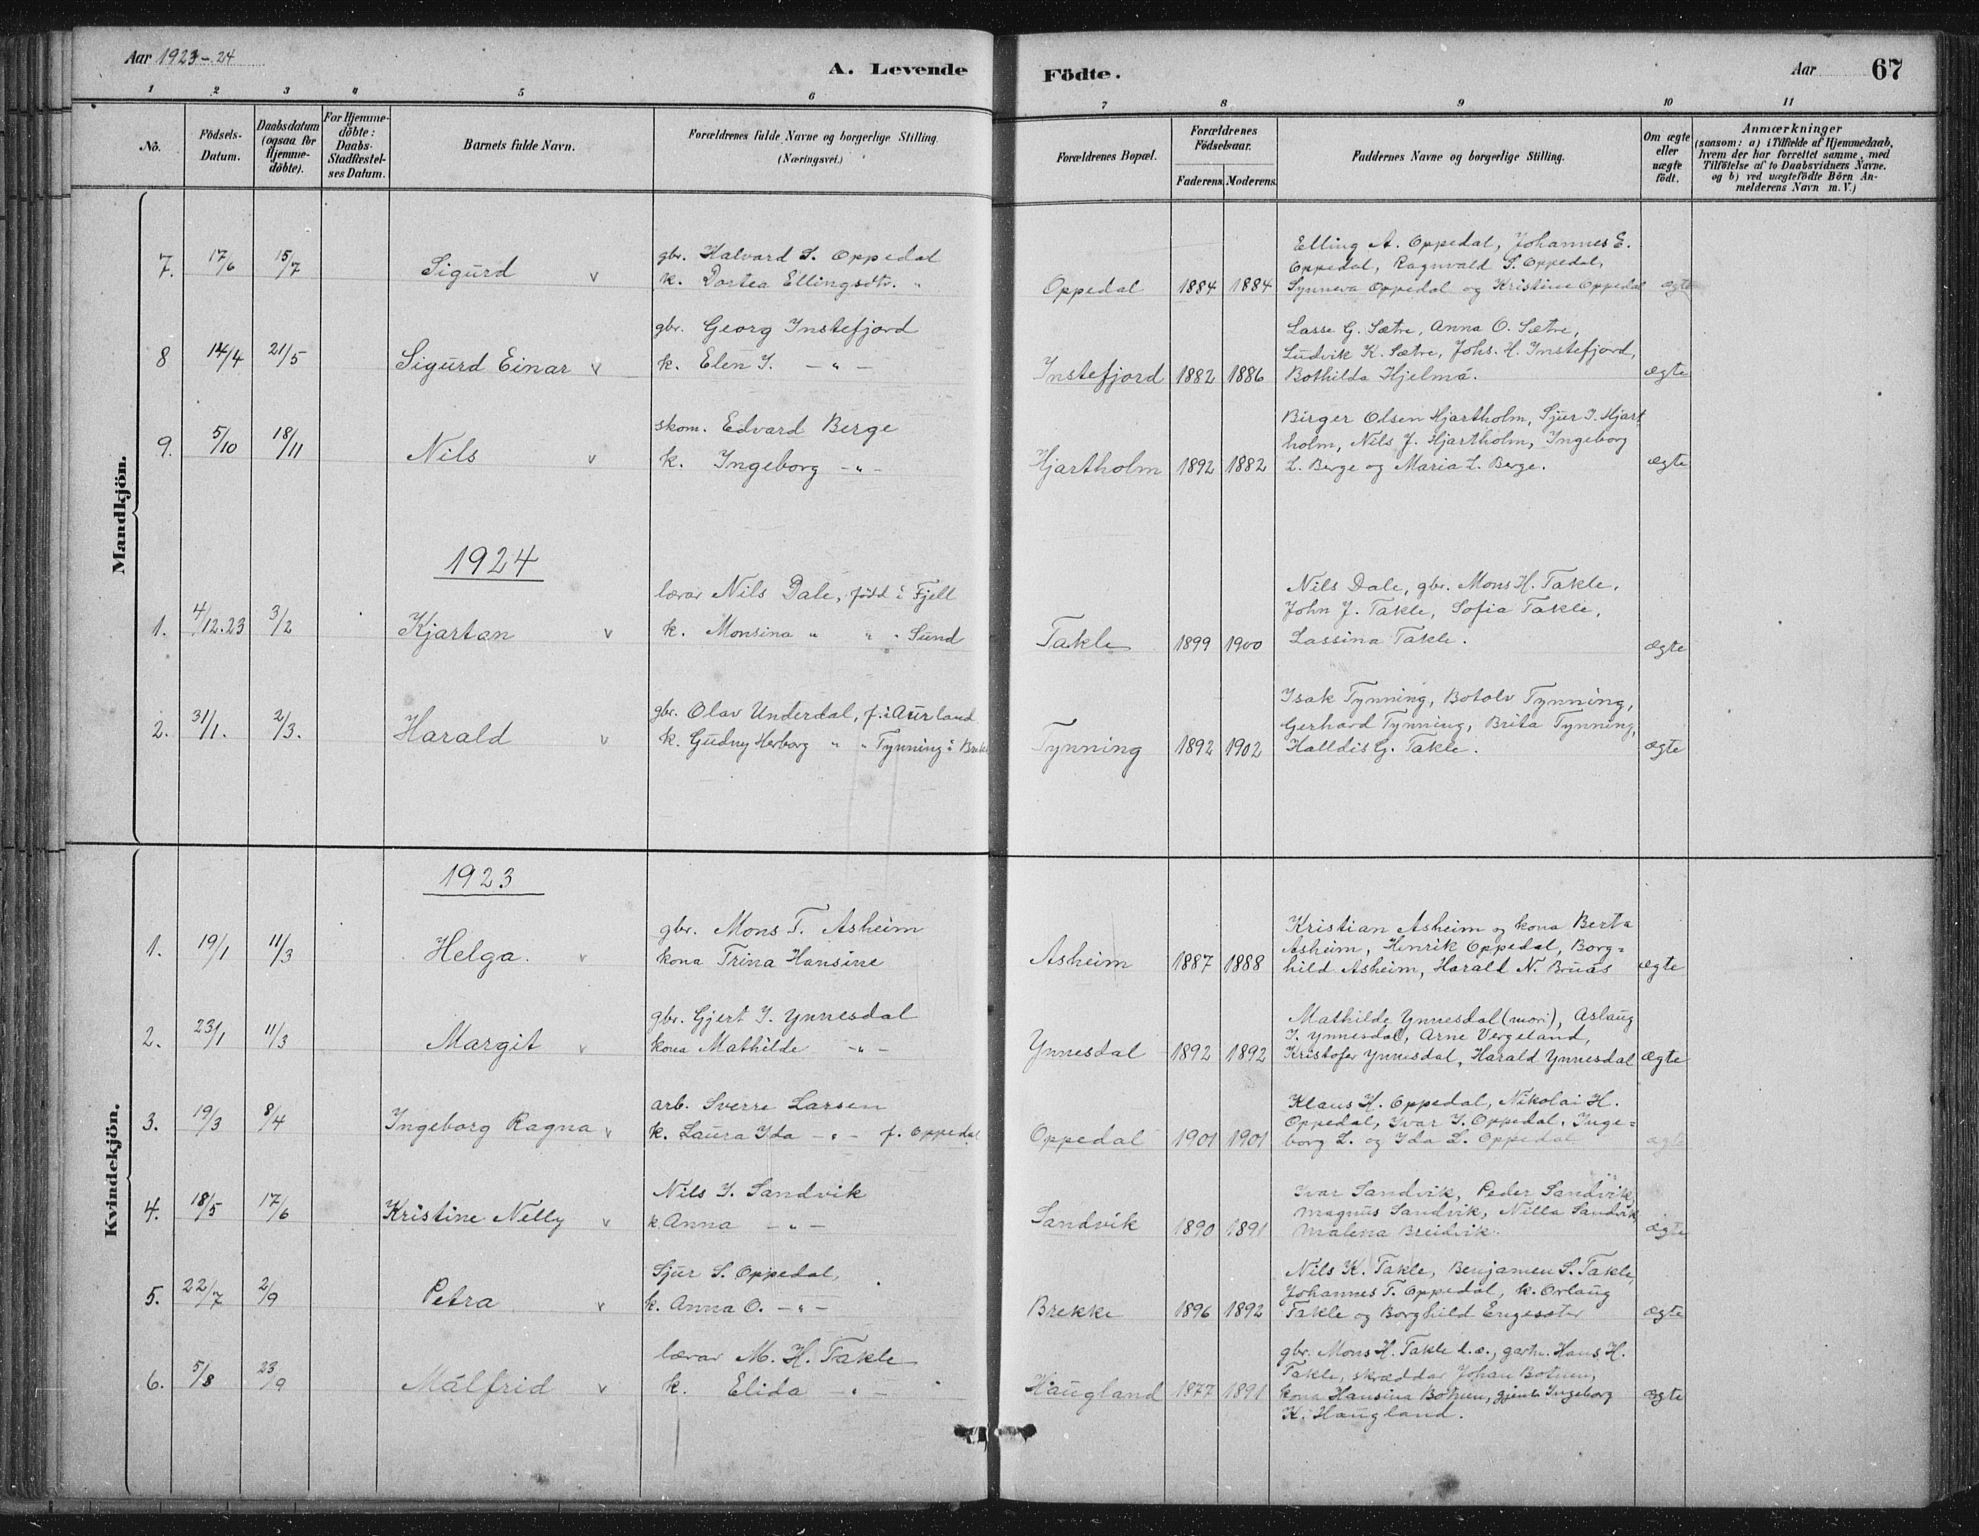 Aar 1923-24
A. Levende Födte.
Aar
67
1 2 3 4 5 6 7 8 9 10 11
No.
Födsels-Datum.
Daabsdatum (ogsaa for Hjemme-döbte).
For Hjemme-döbte: Daabs-Stadfæstel-ses Datum.
Barnets fulde Navn.
Forældrenes fulde Navne og borgerlige Stilling.
(Næringsvei.)
Forældrenes Bopæl.
Forældrenes Födselsaar.
Faderens. Moderens.
Faddernes Navne og borgerlige Stilling.
Om ægte eller uægte födt.
Anmærkninger
(saasom: a) i Tilfælde af Hjemmedaab,
hvem der har forrettet samme, med
Tilföielse af to Daabsvidners Navne.
og b) ved uægtefödte Börn An-
melderens Navn m. V.)
Mandkjön.
7. 17/6 15/7 Sigurd v
gbr. Halvard S. Oppedal
k. Dortea Ellingsdtr. "
Oppedal 1884 1884
Elling A. Oppedal, Johannes E.
Oppedal, Ragnvald S. Oppedal,
Synneva Oppedal og Kristine Oppedal
ægte
8 14/4 21/5 Sigurd Einar v
gbr. Georg Instefjord
k. Elen I. - " -
Instefjord 1882 1886
Lasse G. Sætre, Anna O. Sætre,
Ludvik K. Sætre, Johs. H. Instefjord,
Bothilda Hjelmå.
ægte
9. 5/10 18/11 Nils v
skom. Edvard Berge
k. Ingeborg - " -
Hjartholm 1892 1882
Birger Olsen Hjartholm, Sjur I. Hjart
holm, Nils J. Hjartholm, Ingeborg
L. Berge og Maria L. Berge.
ægte
1924
1. 4/12.23 3/2 Kjartan v
lærar Nils Dale, född i Fjell
k. Monsina " " " Sund
Takle 1899 1900
Nils Dale, gbr. Mons H. Takle,
John J. Takle, Sofia Takle,
Lassina Takle.
ægte
2. 31/1. 2/3. Harald v
gbr. Olav Underdal, f. i Aurland
k. Gudny Herborg " " Tynning i Brekke
Tynning 1892 1902
Isak Tynning, Botolv Tynning,
Gerhard Tynning, Brita Tynning,
Halldis G. Takle.
ægte
Kvindekjön.
1923
1. 19/1 11/3 Helga. v
gbr. Mons T. Asheim
kona Trina Hansine
Asheim 1887 1888
Kristian Asheim og kona Berta
Asheim, Henrik Oppedal, Borg=
hild Asheim, Harald N. Bruås
ægte
2. 23/1 11/3 Margit v
gbr. Gjert I. Ynnesdal
kona Mathilde - " -
Ynnesdal 1892 1892
Mathilde Ynnesdal (mori), Aslaug
I. Ynnesdal, Arne Vergeland,
Kristofer Ynnesdal, Harald Ynnesdal
ægte
3. 19/3 8/4 Ingeborg Ragna v
arb. Sverre Larsen
k. Laura Ida - " - f. Oppedal
Oppedal 1901 1901
Klaus H. Oppedal, Nikolai H.
Oppedal, Ivar I. Oppedal, Inge=
borg L. og Ida L. Oppedal
ægte
4. 18/5 17/6 Kristine Nelly v
Nils I. Sandvik
k Anna - " -
Sandvik 1890 1891
Ivar Sandvik, Peder Sandvik,
Magnus Sandvik, Nilla Sandvik
Malena Breidvik.
ægte
5. 22/7 2/9 Petra v
Sjur S. Oppedal,
k. Anna O. - " -
Brekke 1896 1892
Nils K. Takle, Benjamen S. Takle,
Johannes T. Oppedal, k. Orlaug
Takle og Borghild Engesæter
ægte
6. 5/8 23/9 Målfrid v
lærar M. H. Takle
k. Elida " -
Haugland 1877 1891
gbr. Mons H. Takle d.e., gartn. Hans H.
Takle, skræddar Johan Botnen,
kona Hansina Botnen, gjenta Ingeborg
K. Haugland.
ægte